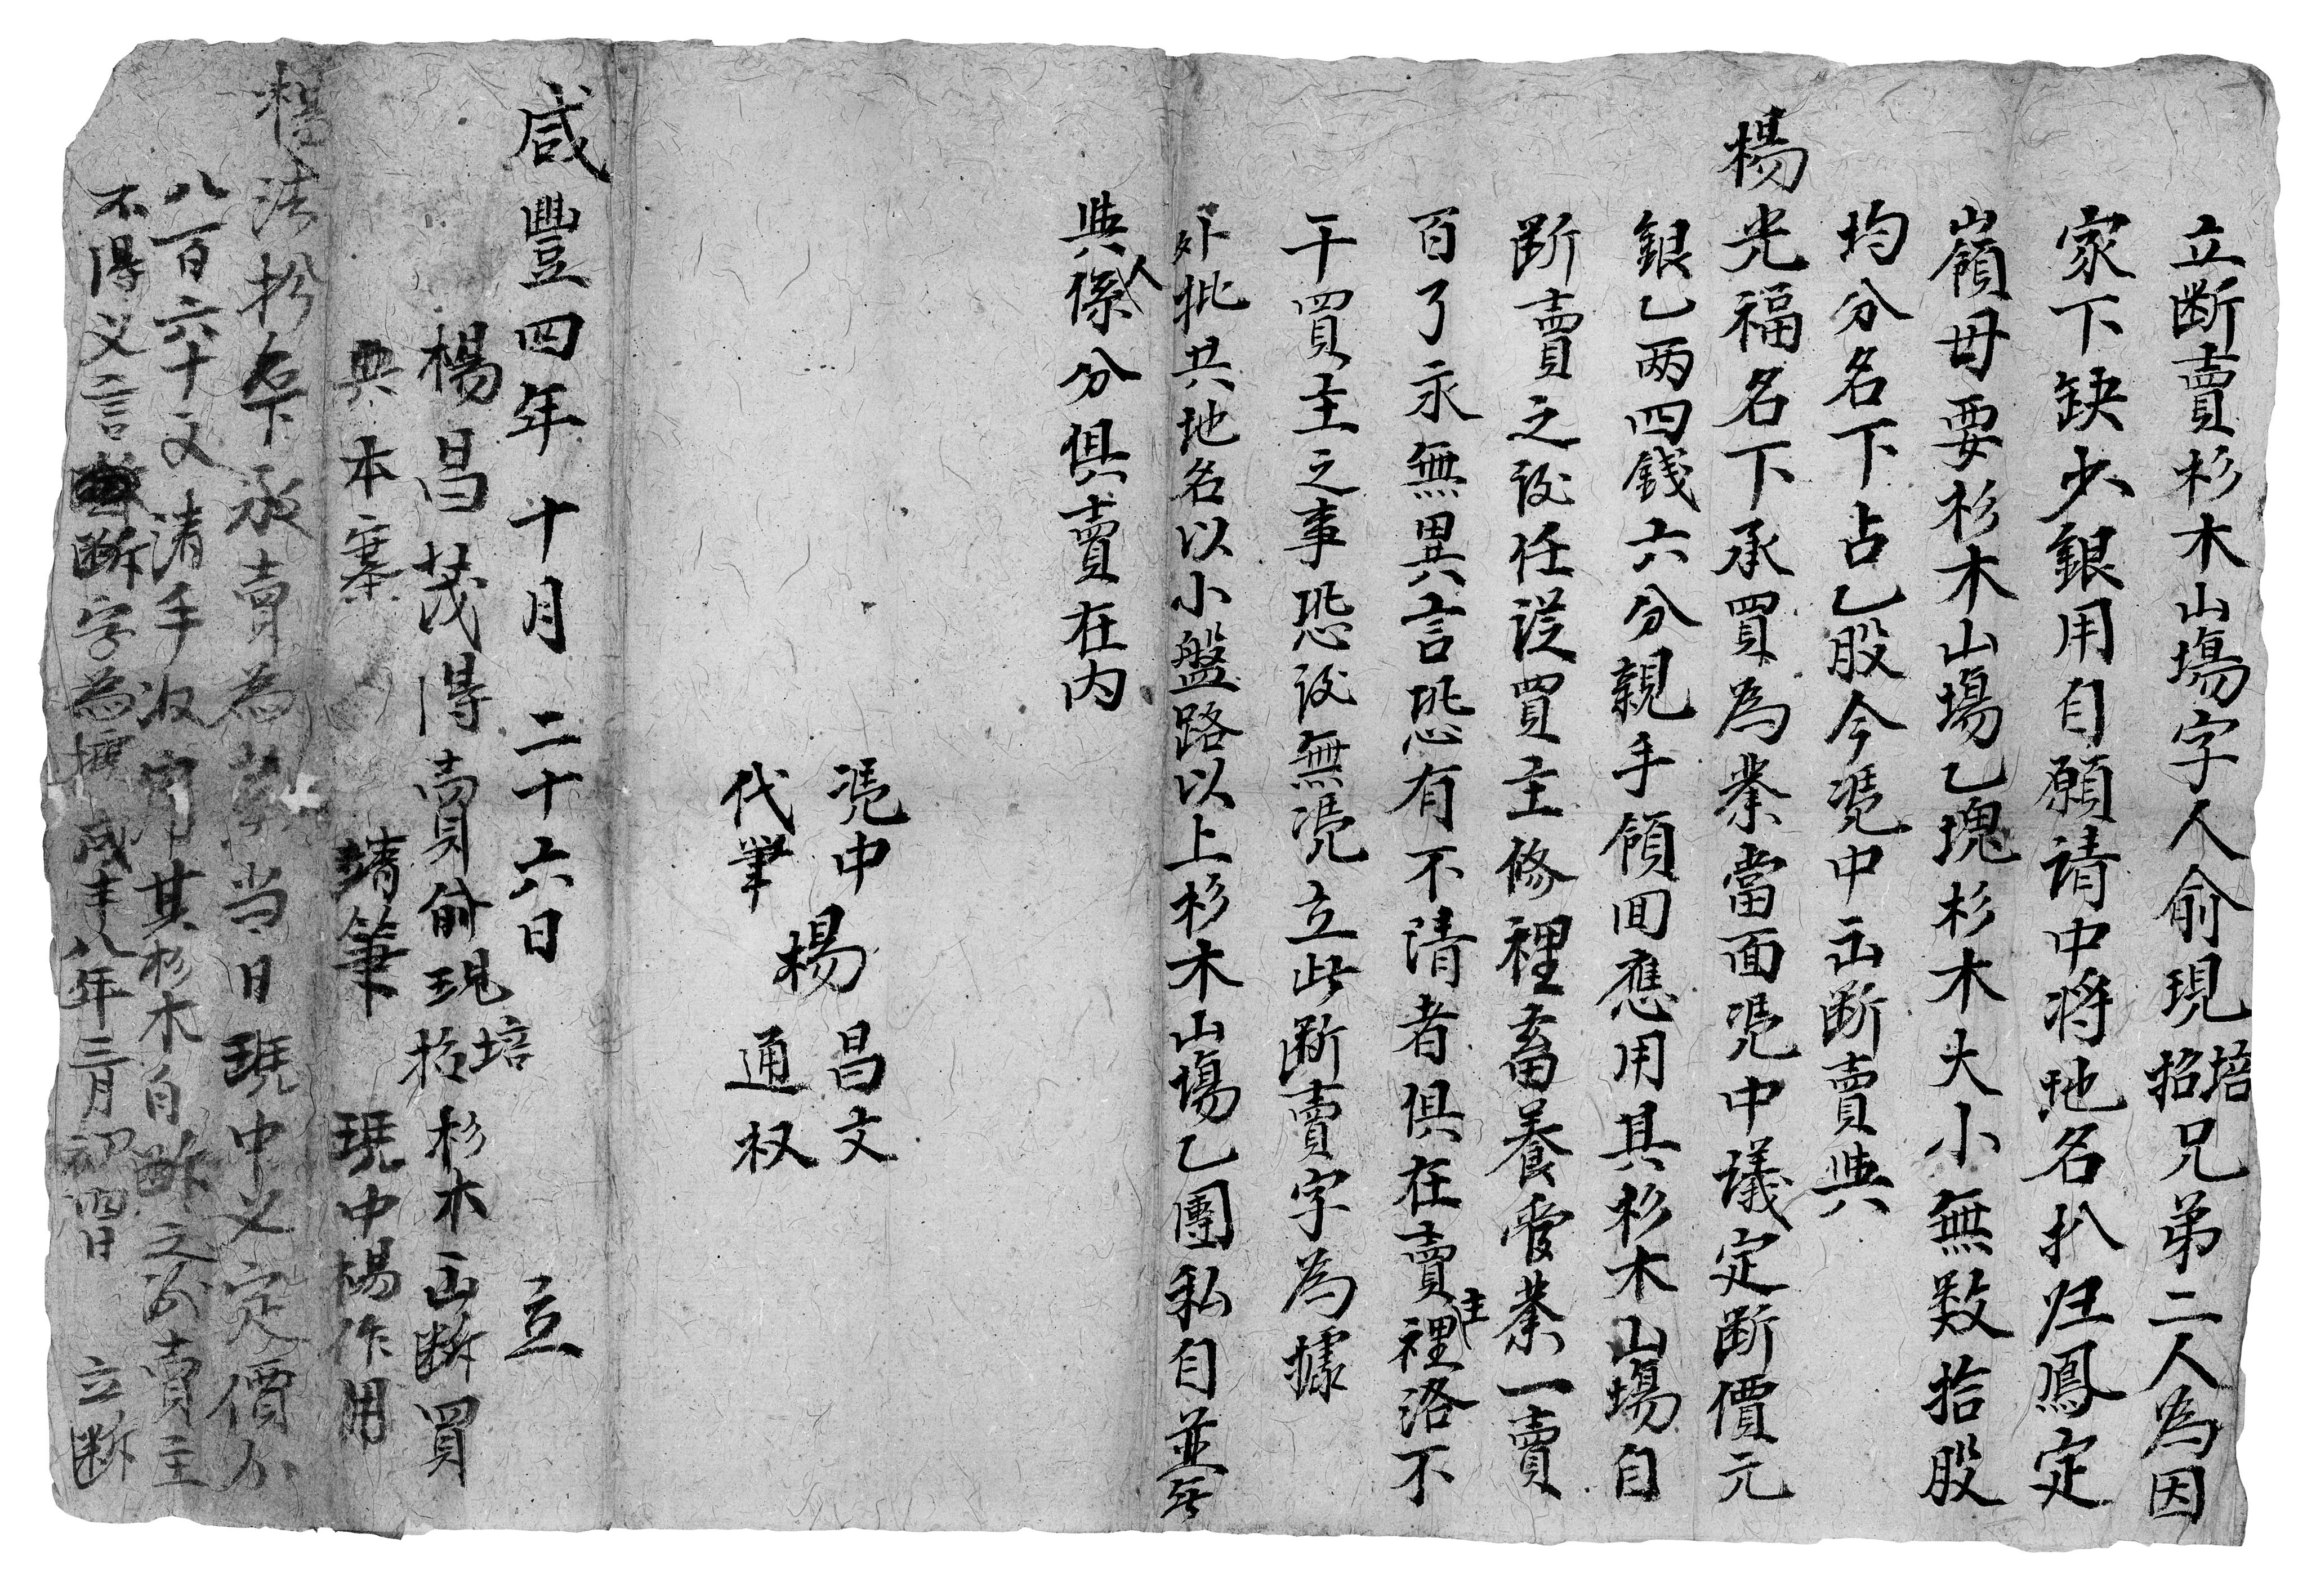 立断賣杉木山塲字人俞現培招兄弟二人為因
家下缺少銀用自願请中将地名扒归鳳定
嶺毋要杉木山塲乙塊杉木大小無数拾股
均分名下占乙股今凴中出断賣典
楊光福名下承買為業當面凴中議定断價元
銀乙两四錢六分親手領囬應用其杉木山塲自
断賣之後任從買主修裡畜養管業一賣
百了永無異言恐有不清者俱在賣主裡洛不
干買主之事恐後無凴立此断賣字為據
外批共地名以小盤路以上杉木山塲乙團私自並無
典人係分俱賣在内
凴中 楊昌文
代筆 楊通权
咸豐四年十月二十六日 立
楊昌茂得賣俞現培招杉木出断買
典本寨 請筆 現中楊作用
楊法松名下承賣為業当日現中义定價分
八百六十文清手收用其杉木自断之後賣主
不得义言断字為據咸丰八年三月初四日 立断